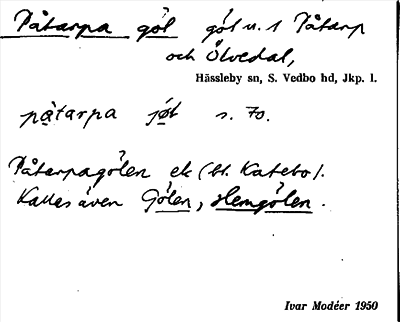 Påtarpa göl göl u. 1 Påtarp
och Ölvedal,
Hässleby sn, S. Vedbo hd, Jkp. l.
pàtarpa jøl s. 70.
Påtarpagölen ek (bl. Katebo).
Kallas även Gölen, Hemgölen.
Ivar Modéer 1950